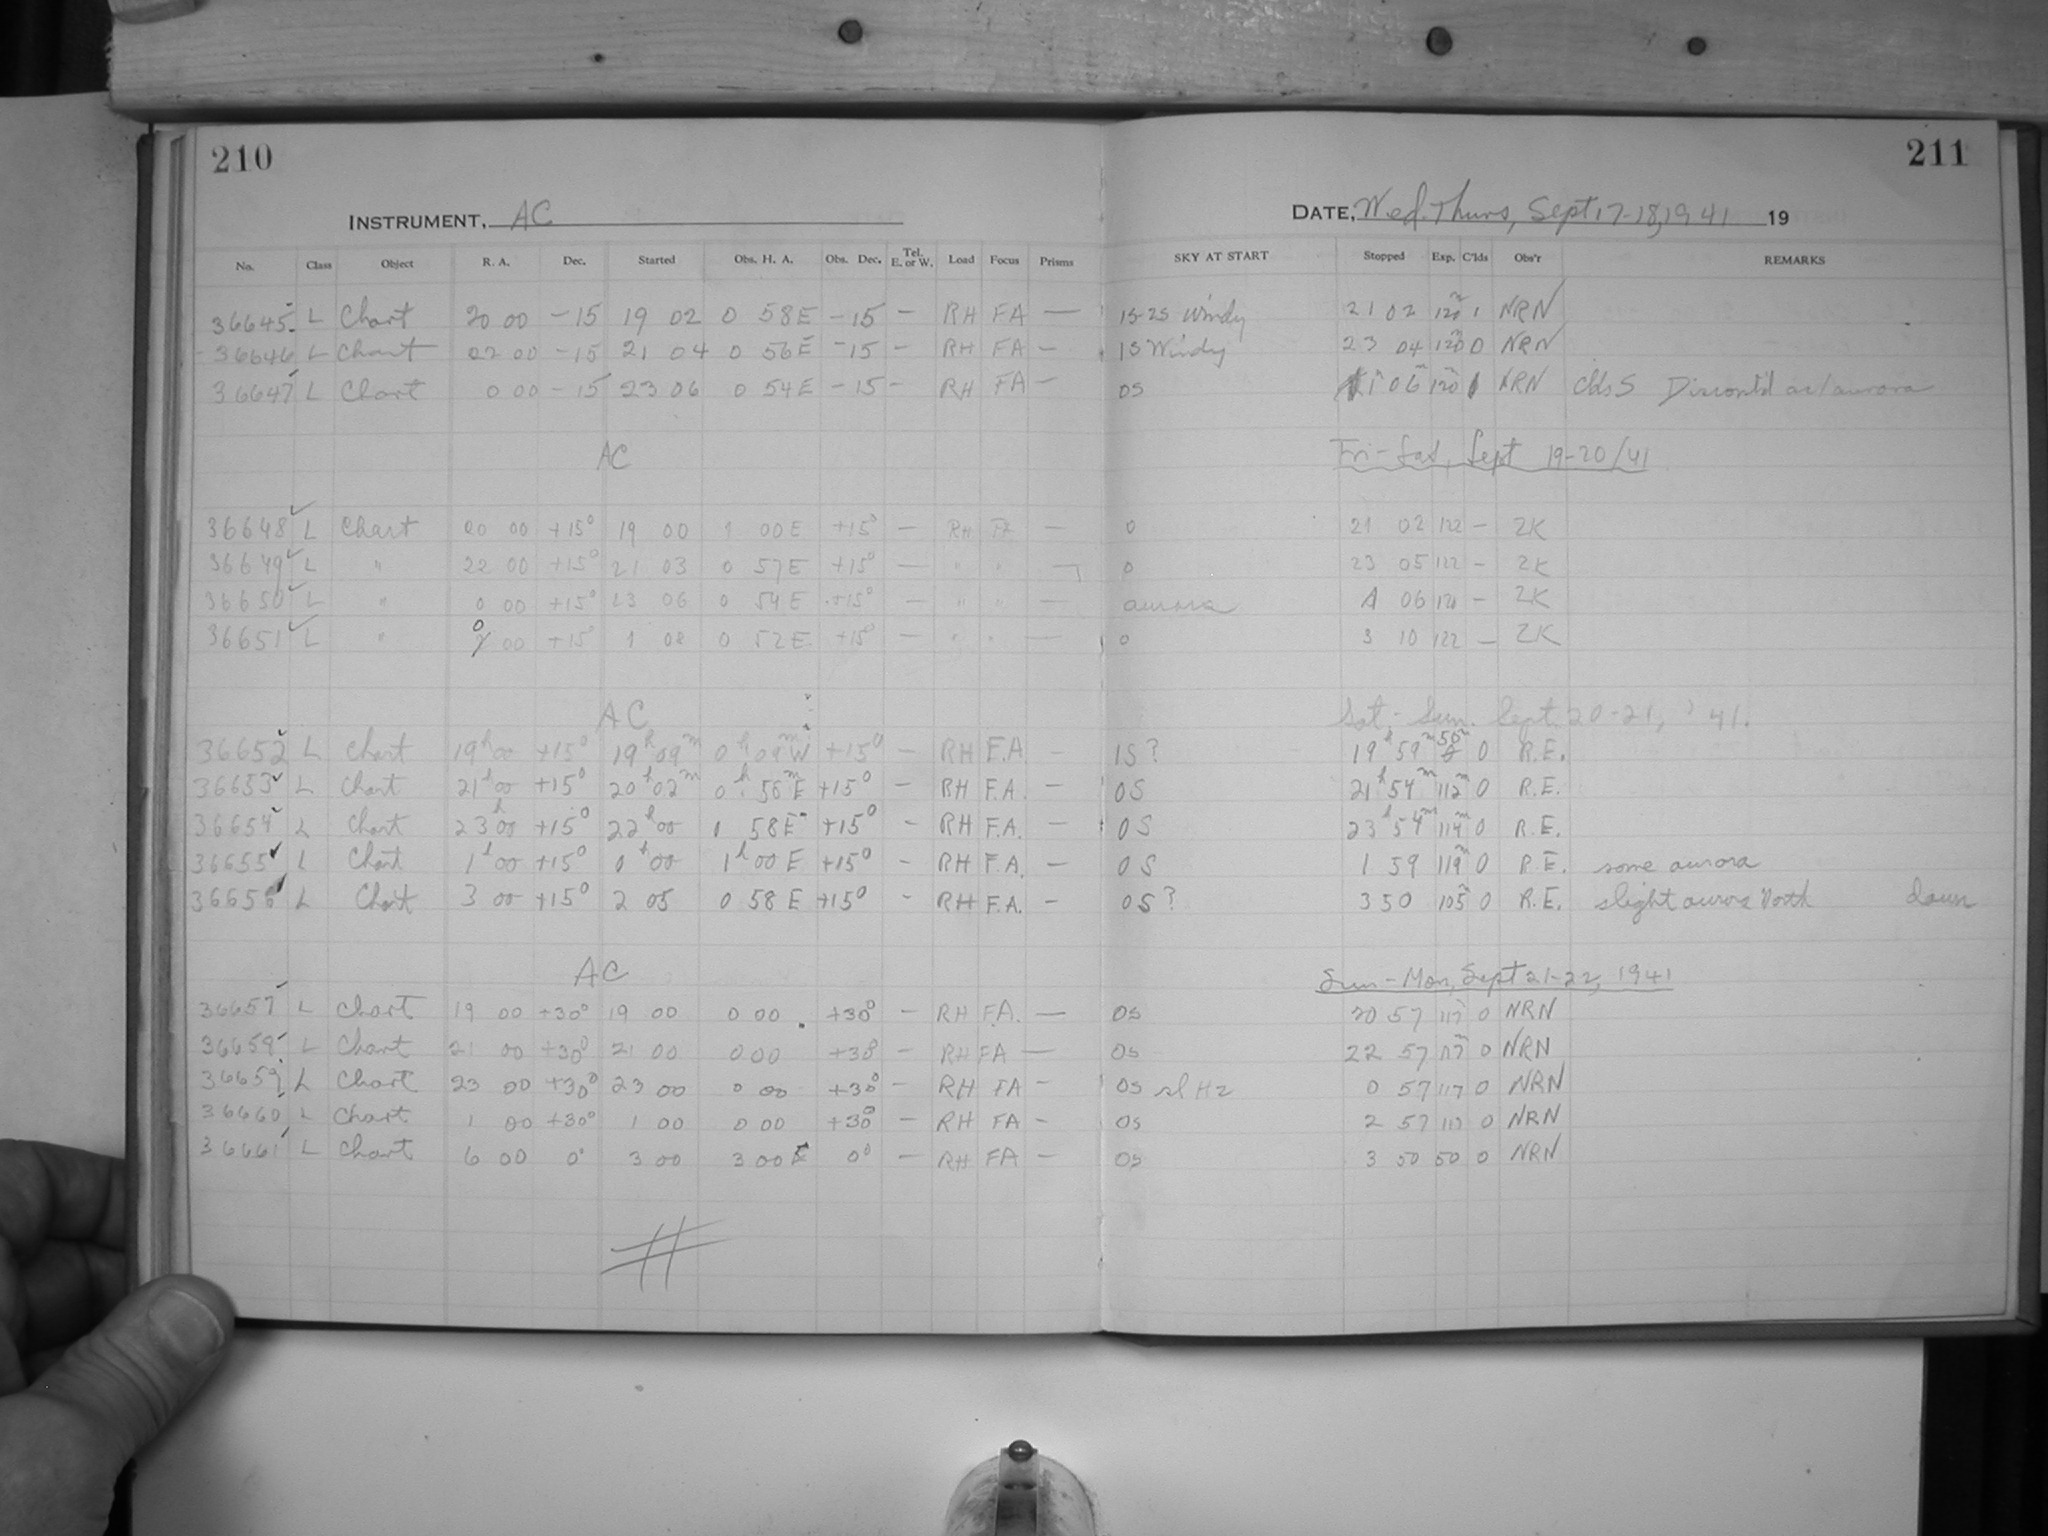 210
211
INSTRUMENT, AC
DATE, Wed. Thurs, Sept 17-18, 1941 19
No. Class Object R. A. Dec. Started Obs. H. A. Obs. Dec. Tel. E. or W. Load Focus Prisms SKY AT START Stopped Exp. C'lds Obs'r REMARKS
36645 L Chart 20 00 -15 19 02 0 58E -15 - RH FA — 1S-2S Windy 21 02 120m 1 NRN
36646 L Chart 22 00 -15 21 04 0 56E -15 - RH FA - 1S Windy 23 04 120 0 NRN
36647 L Chart 0 00 -15 23 06 0 54E -15 - RH FA - 0S 1 06 120 1 NRN Clds S Discont'd ac/aurora
AC Fri-Sat, Sept 19-20/41
36648 L Chart 20 00 +15° 19 00 1 00E +15° - RH FA - 0 21 02 122 - ZK
36649 L " 22 00 +15° 21 03 0 57E +15° - " " - 0 23 05 122 - ZK
36650 L " 0 00 +15° 23 06 0 54E +15° - " " - aurora 1 06 120 - ZK
36651 L " 00 +15° 1 08 0 52E +15° - " " - 0 3 10 122 - ZK
AC Sat.-Sun. Sept. 20-21, '41.
36652 L Chart 19h00 +15° 19h09m 0h09mW +15° - RH F.A - 1S? 19h59m 50m 0 R.E.
36653 L Chart 21h00 +15° 20h02m 0h56mE +15° - RH F.A. - 0S 21h54m 112m 0 R.E.
36654 L Chart 23h00 +15° 22h00 58E +15° - RH F.A. - 0S 23h54m 114m 0 R.E.
36655 L Chart 1h00 +15° 0h00 1h00 E +15° - RH F.A. - 0S 1 59 119m 0 R.E. some aurora
36656 L Chart 3 00 +15° 2 05 0 58 E +15° - RH F.A. - 0S? 3 50 105m 0 R.E. slight aurora North dawn
AC Sun-Mon, Sept 21-22, 1941
36657 L Chart 19 00 +30° 19 00 0 00 +30° - RH FA. — 0S 20 57 117 0 NRN
36658 L Chart 21 00 +30° 21 00 0 00 +30° - RH FA — 0S 22 57 117 0 NRN
36659 L Chart 23 00 +30° 23 00 0 00 +30° - RH FA - 0S sl Hz 0 57 117 0 NRN
36660 L Chart 1 00 +30° 1 00 0 00 +30° - RH FA - 0S 2 57 117 0 NRN
36661 L Chart 6 00 0° 3 00 3 00E 0° - RH FA - 0S 3 50 50 0 NRN